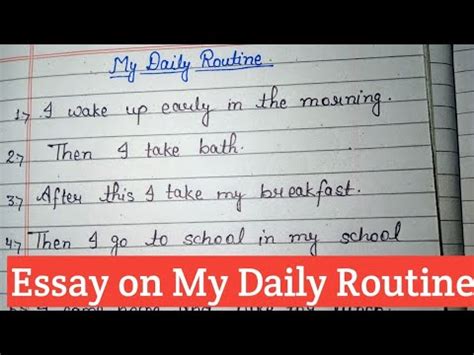 My Daily Routine.
1→ I wake up early in the morning.
2→ Then I take bath.
3→ After this I take my breakfast.
4→ Then I go to school in my school
Essay on My Daily Routine